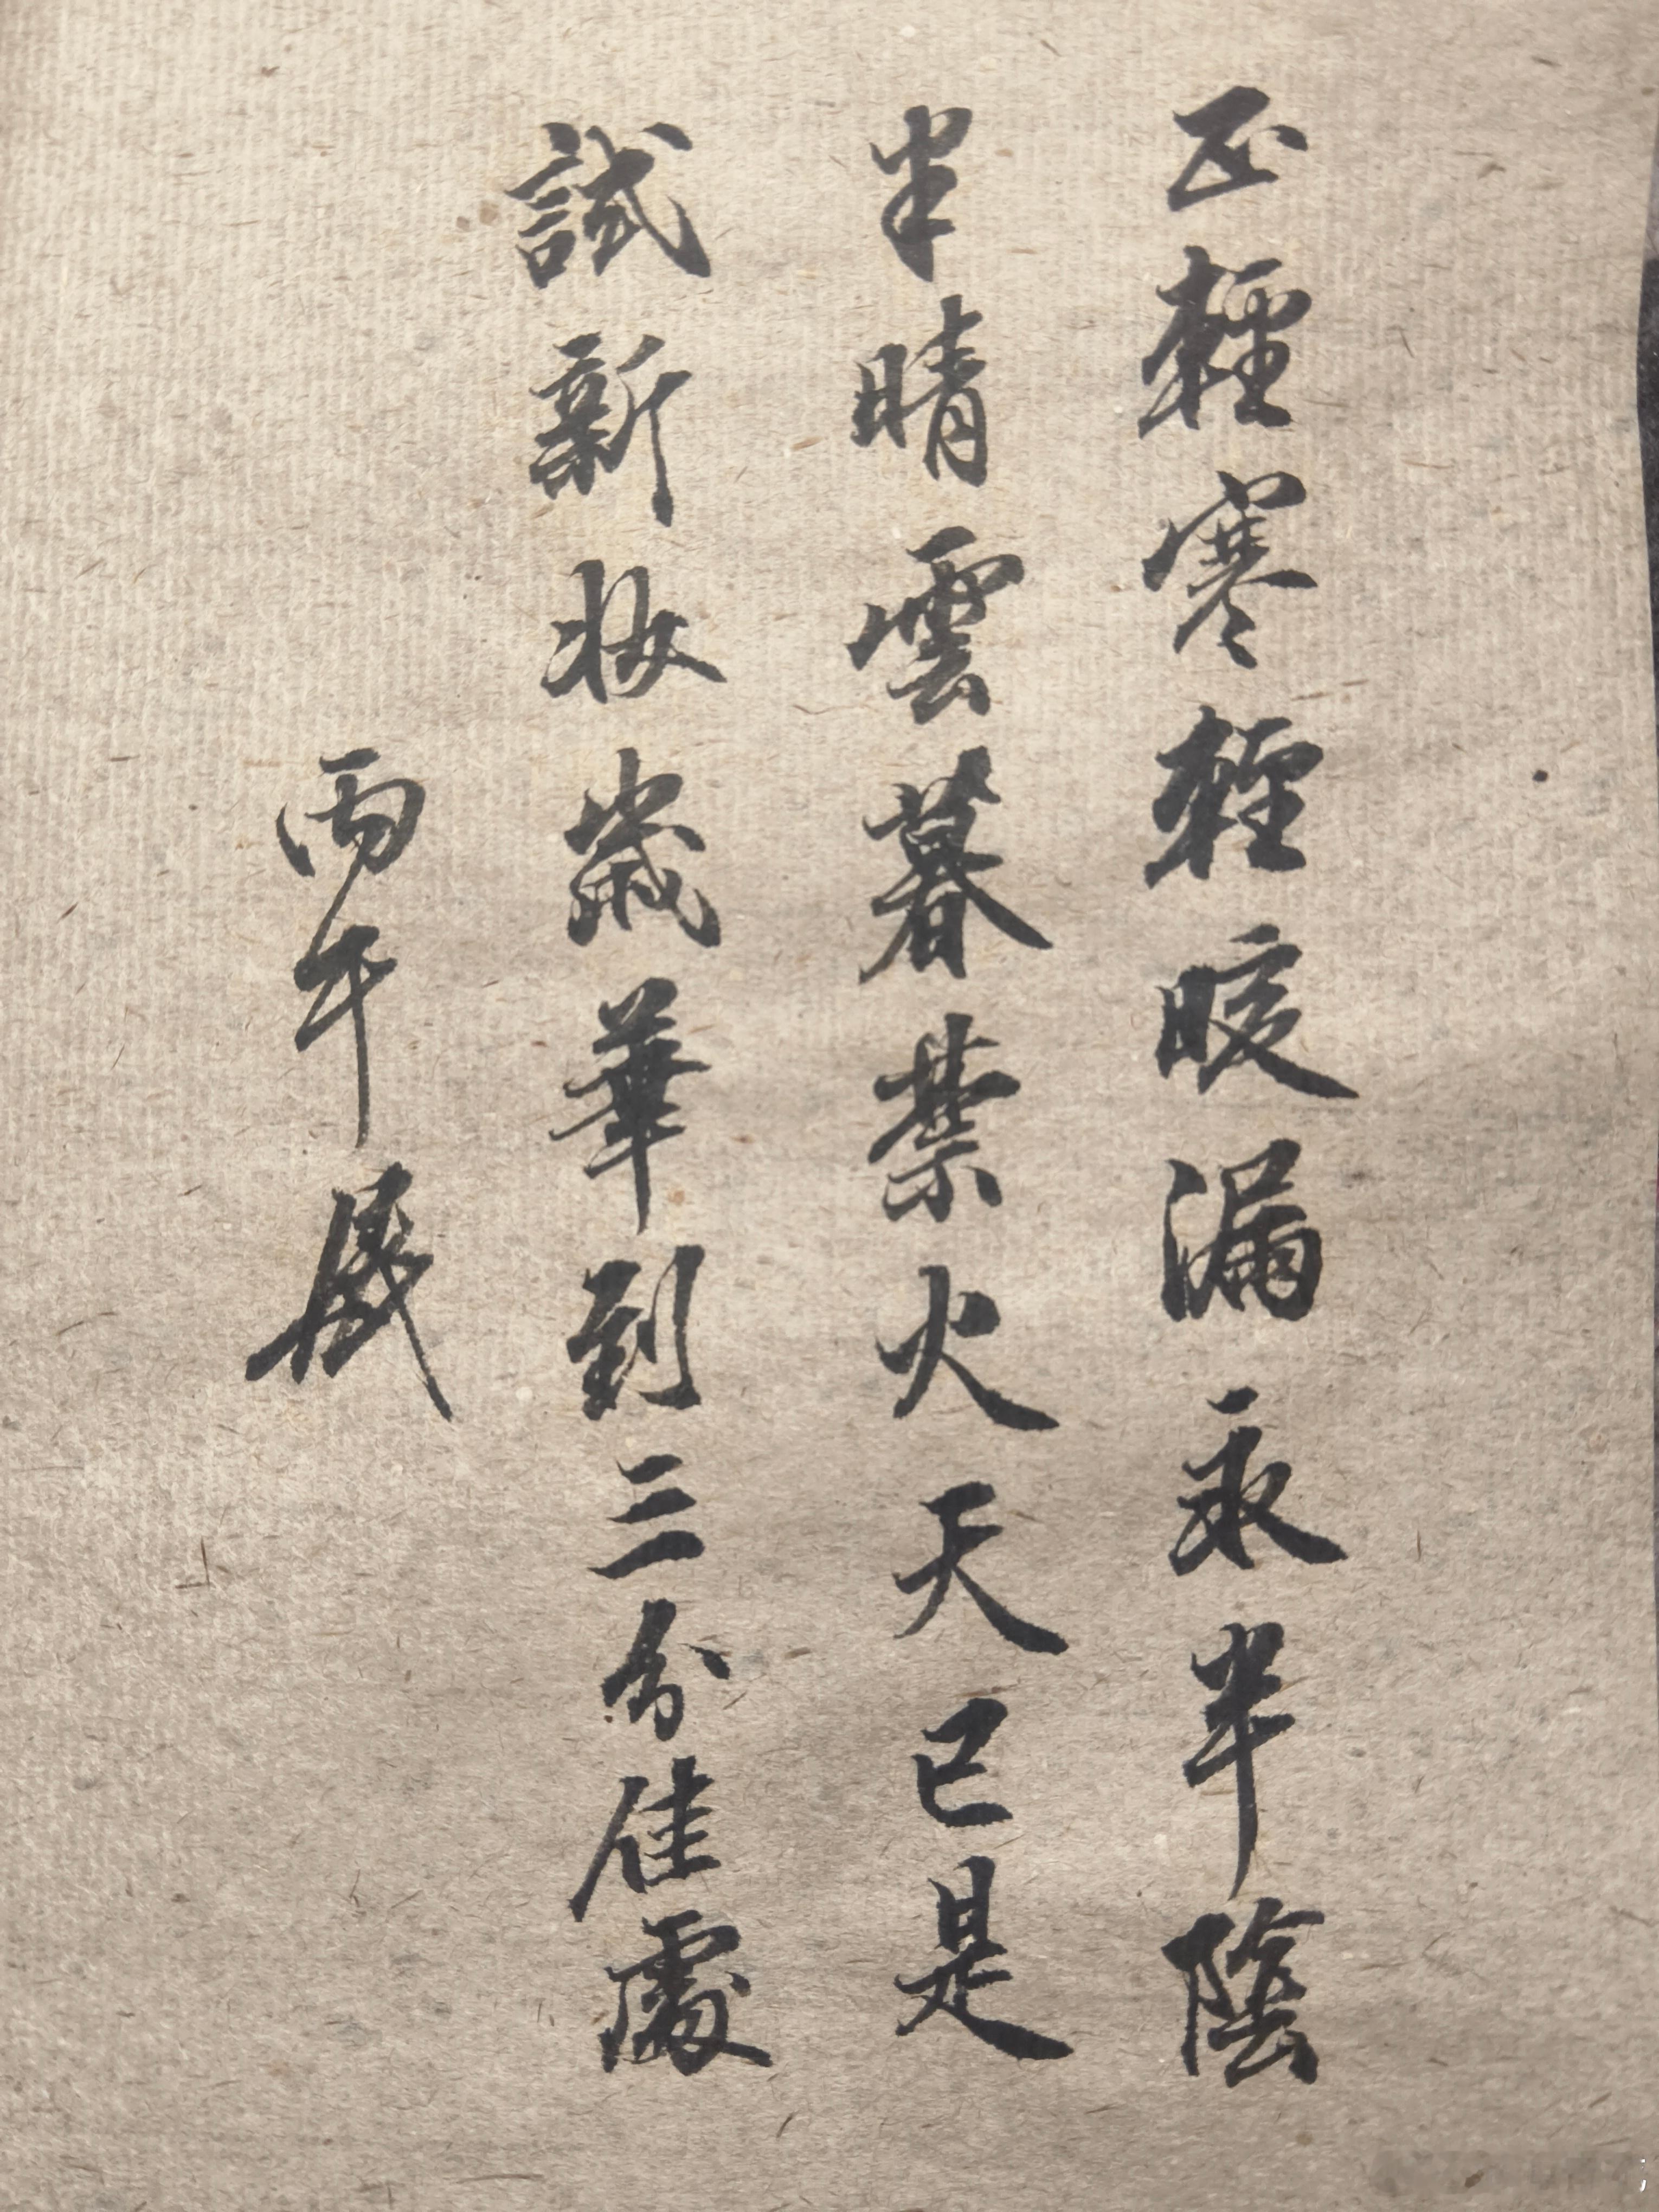 正輕寒輕暖漏永半陰
半晴雲暮禁火天已是
試新妝歲華到三分佳處
丙午